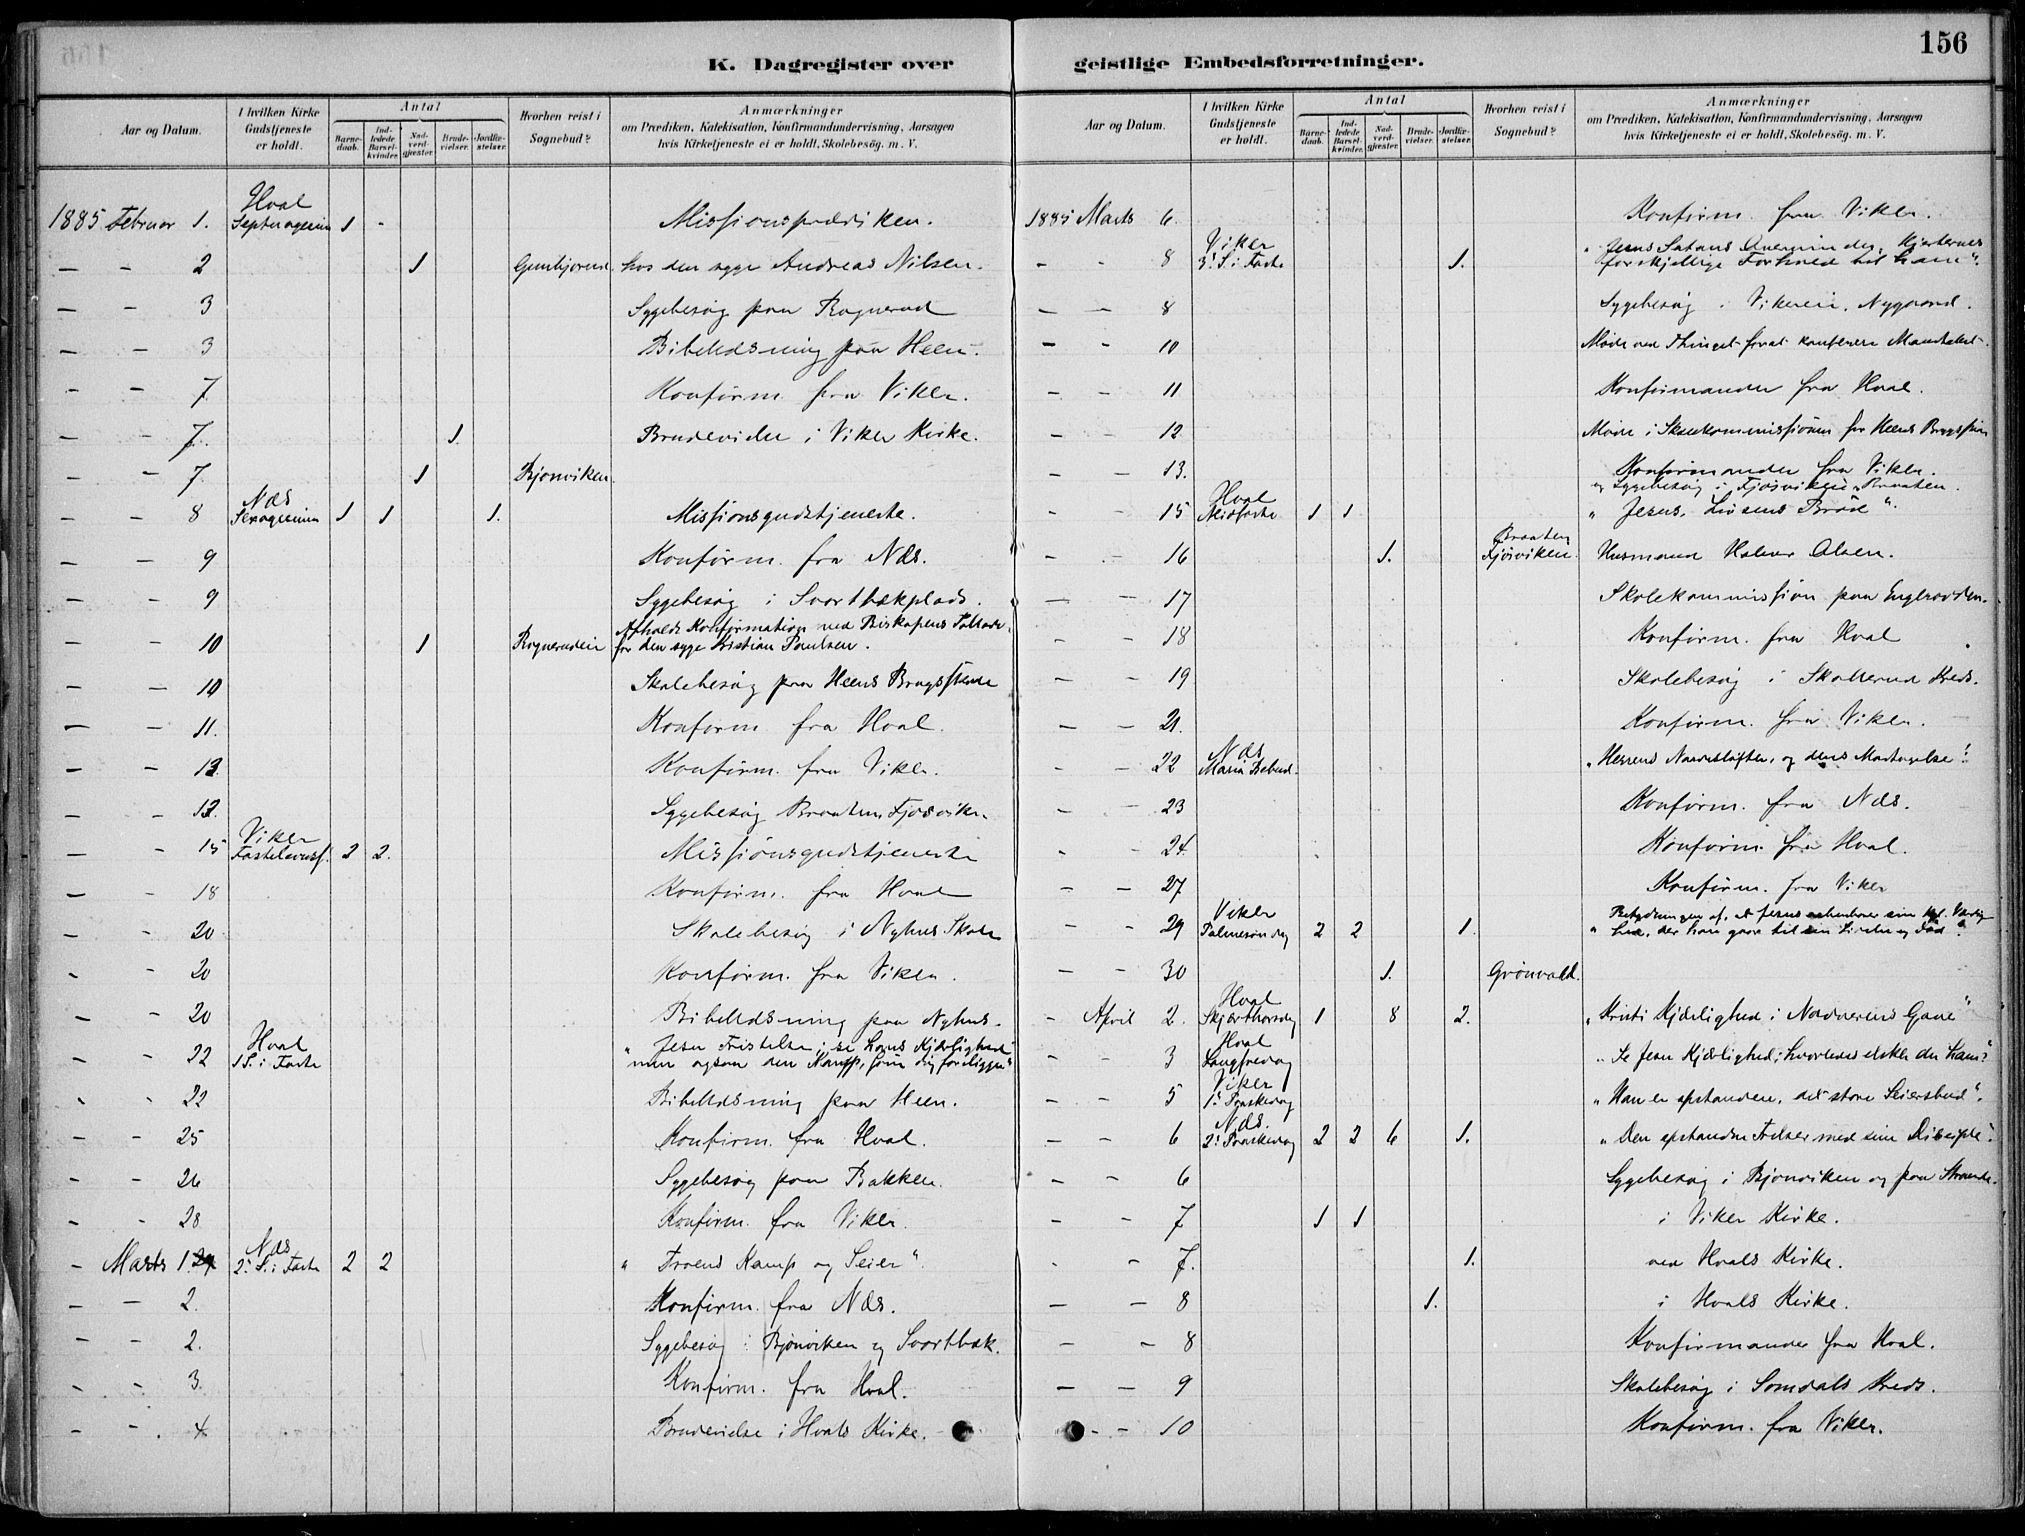 156
K. Dagregister over geistlige Embedsforretninger.
Aar og Datum.
I hvilken Kirke Gudstjeneste er holdt.
Antal
Barnedaab.
Indledede Barselkvinder.
Nadverdgjæster.
Brudevielser.
Jordfæstelser.
Hvorhen reist i Sognebud?
Anmærkninger
om Prædiken, Katekisation, Konfirmandundervisning, Aarsagen
hvis Kirketjeneste ei er holdt, Skolebesög. m. V.
1885 Februar 1. Hval Septuagesim 1 - Missionsprædiken.
— - 2 1 Gunbjörrud. hos den syge Andreas Nilsen.
— — 3 Sygebesøg paa Rognerud
- — 3 Bibellæsning paa Heen.
— — 7 Konfirm. fra Viker.
— — 7. 1. Brudevielse i Viker Kirke.
- — 7. 1 Bjonviken.
- - 8 Næs Sexagesima 1 1 1. Missionsgudstjeneste.
— — 9 Konfirm. fra Næs.
— — 9 Sygebesøg i Svartbækplads.
— — 10 1 Rognerudeie Afholdt Konfirmation med Biskopens Tilladelse
for den syge Kristian Paulsen.
— — 10 Skolebesøg paa Heens Brugsskole
— — 11. Konfirm. fra Hval.
— — 13. Konfirm. fra Viker.
- - 13. Sygebesøg Braaten Fjøsviken
— - 15 Viker Fastelavnss. 2 2. Missionsgudstjeneste
— - 18 Konfirm. fra Hval
- - 20 Skolebesøg i Nyhus Skole
- - 20 Konfirm. fra Viker.
- - 20 Bibellæsning paa Nyhus.
- - 22 Hval 1 S. i Faste „Jesu Fristelse; se hans Kjærlighed
men ogsaa den Kamp, som dig foreligger"
- - 22 Bibellæsning paa Heen.
- - 25 Konfirm. fra Hval.
- - 26 Sygebesøg paa Bakken.
- - 28 Konfirm. fra Viker.
- Marts 1. Næs 2. S. i Faste 2 2 „Troens Kamp og Seier".
- — 2. Konfirm. fra Næs.
- - 2. Sygebesøg i Bjonviken og Svartbæk.
- - 3. Konfirm. fra Hval.
- - 4 Brudevielse i Hvals Kirke.
Aar og Datum.
I hvilken Kirke Gudstjeneste er holdt.
Antal
Barnedaab.
Indledede Barselkvinder.
Nadverdgjæster.
Brudevielser.
Jordfæstelser.
Hvorhen reist i Sognebud?
Anmærkninger
om Prædiken, Katekisation, Konfirmandundervisning, Aarsagen
hvis Kirketjeneste ei er holdt, Skolebesög. m. V.
1885 Marts 6. Konfirm. fra Viker.
- - 8 Viker 3. S. i Faste 1. „Jesus Satans Overvinder, Hjerternes
forskjellige Forhold til ham".
— — 8 Sygebesøg i Vikereie, Nygaard.
- - 10 Møde ved Thinget forat konferere Mandtallet.
— - 11 Konfirmander fra Hval.
— - 12 Møde i Skolekommissionen for Heens Brugsskole
— — 13. Konfirmander fra Viker.
og Sygebesøg i Fjøsvikeie Braaten.
- - 15 Hval Midfaste 1 1 „Jesus, Livsens Brød".
- - 16 1. Braaten Fjøsviken. Husmand Halvor Olsen.
— — 17 Skolekommission paa
- - 18 Konfirm. fra Hval
— - 19 Skolebesøg i Skollerud Kreds.
— — 21. Konfirm. fra Viker.
- — 22 Næs Mariæ Bebud. „Herrens Naadesløfter, og deres Modtagelse".
- - 23 Konfirm. fra Næs.
- - 24. Konfirm. fra Hval.
- — 27 Konfirm. fra Viker
- - 29 Viker Palmesøndag 2 2 1. „Betydningen af, at Jesus
hed, der han gaar til sin Lidelse og Død".
— — 30 1. Grönvold.
- April 2. Hval Skjærthorsdag 1 8 2. „Kristi Kjærlighed i Nadverens Gave"
- - 3 Hval Langfredag „Se Jesu Kjærlighed; hvorledes elsker du ham?"
— - 5 Viker 1. Paaskedag „Han er opstanden, det store Seiersbud".
- - 6 Næs. 2. Paaskedag 2 2 6 1. „Den opstandne Frelser med sine Disciple".
— - 6 Sygebesøg i Bjonviken og paa Strande.
— - 7 1 1 i Viker Kirke.
- - 7. 1. ved Hvals Kirke.
— — 8 1. i Hvals Kirke.
— - 8 Konfirmander fra Hval.
— — 9 Skolebesøg i Somdals Kreds.
- - 10 Konfirm. fra Viker.